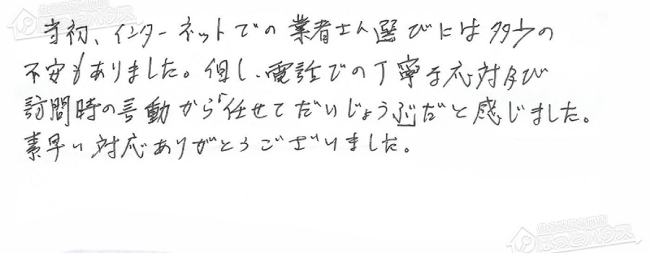 当初、インターネットでの業者さん選びには多少の
不安もありました。但し、電話での丁寧な応対及び
訪問時の言動から「任せてだいじょうぶ」だと感じました。
素早い対応ありがとうございました。